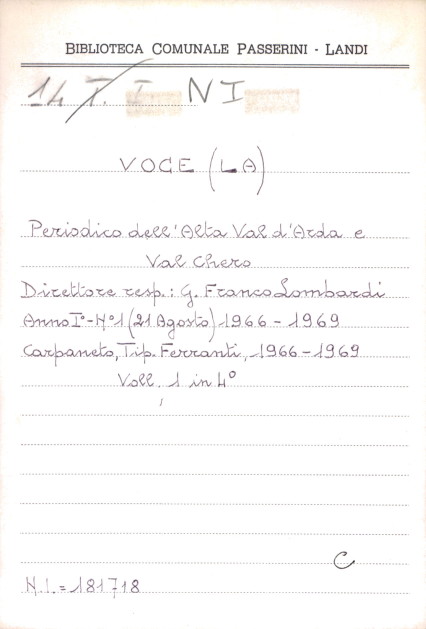 BIBLIOTECA COMUNALE PASSERINI - LANDI
14 T. I NI
VOCE (LA)
Periodico dell'Alta Val d'Arda e
Val Chero
Direttore resp.: G. Franco Lombardi
Anno I° - N° 1 (21 Agosto) 1966 - 1969
Carpaneto, Tip. Ferranti, 1966 - 1969
Voll. 1 in 4°
C
N.I. = 181718